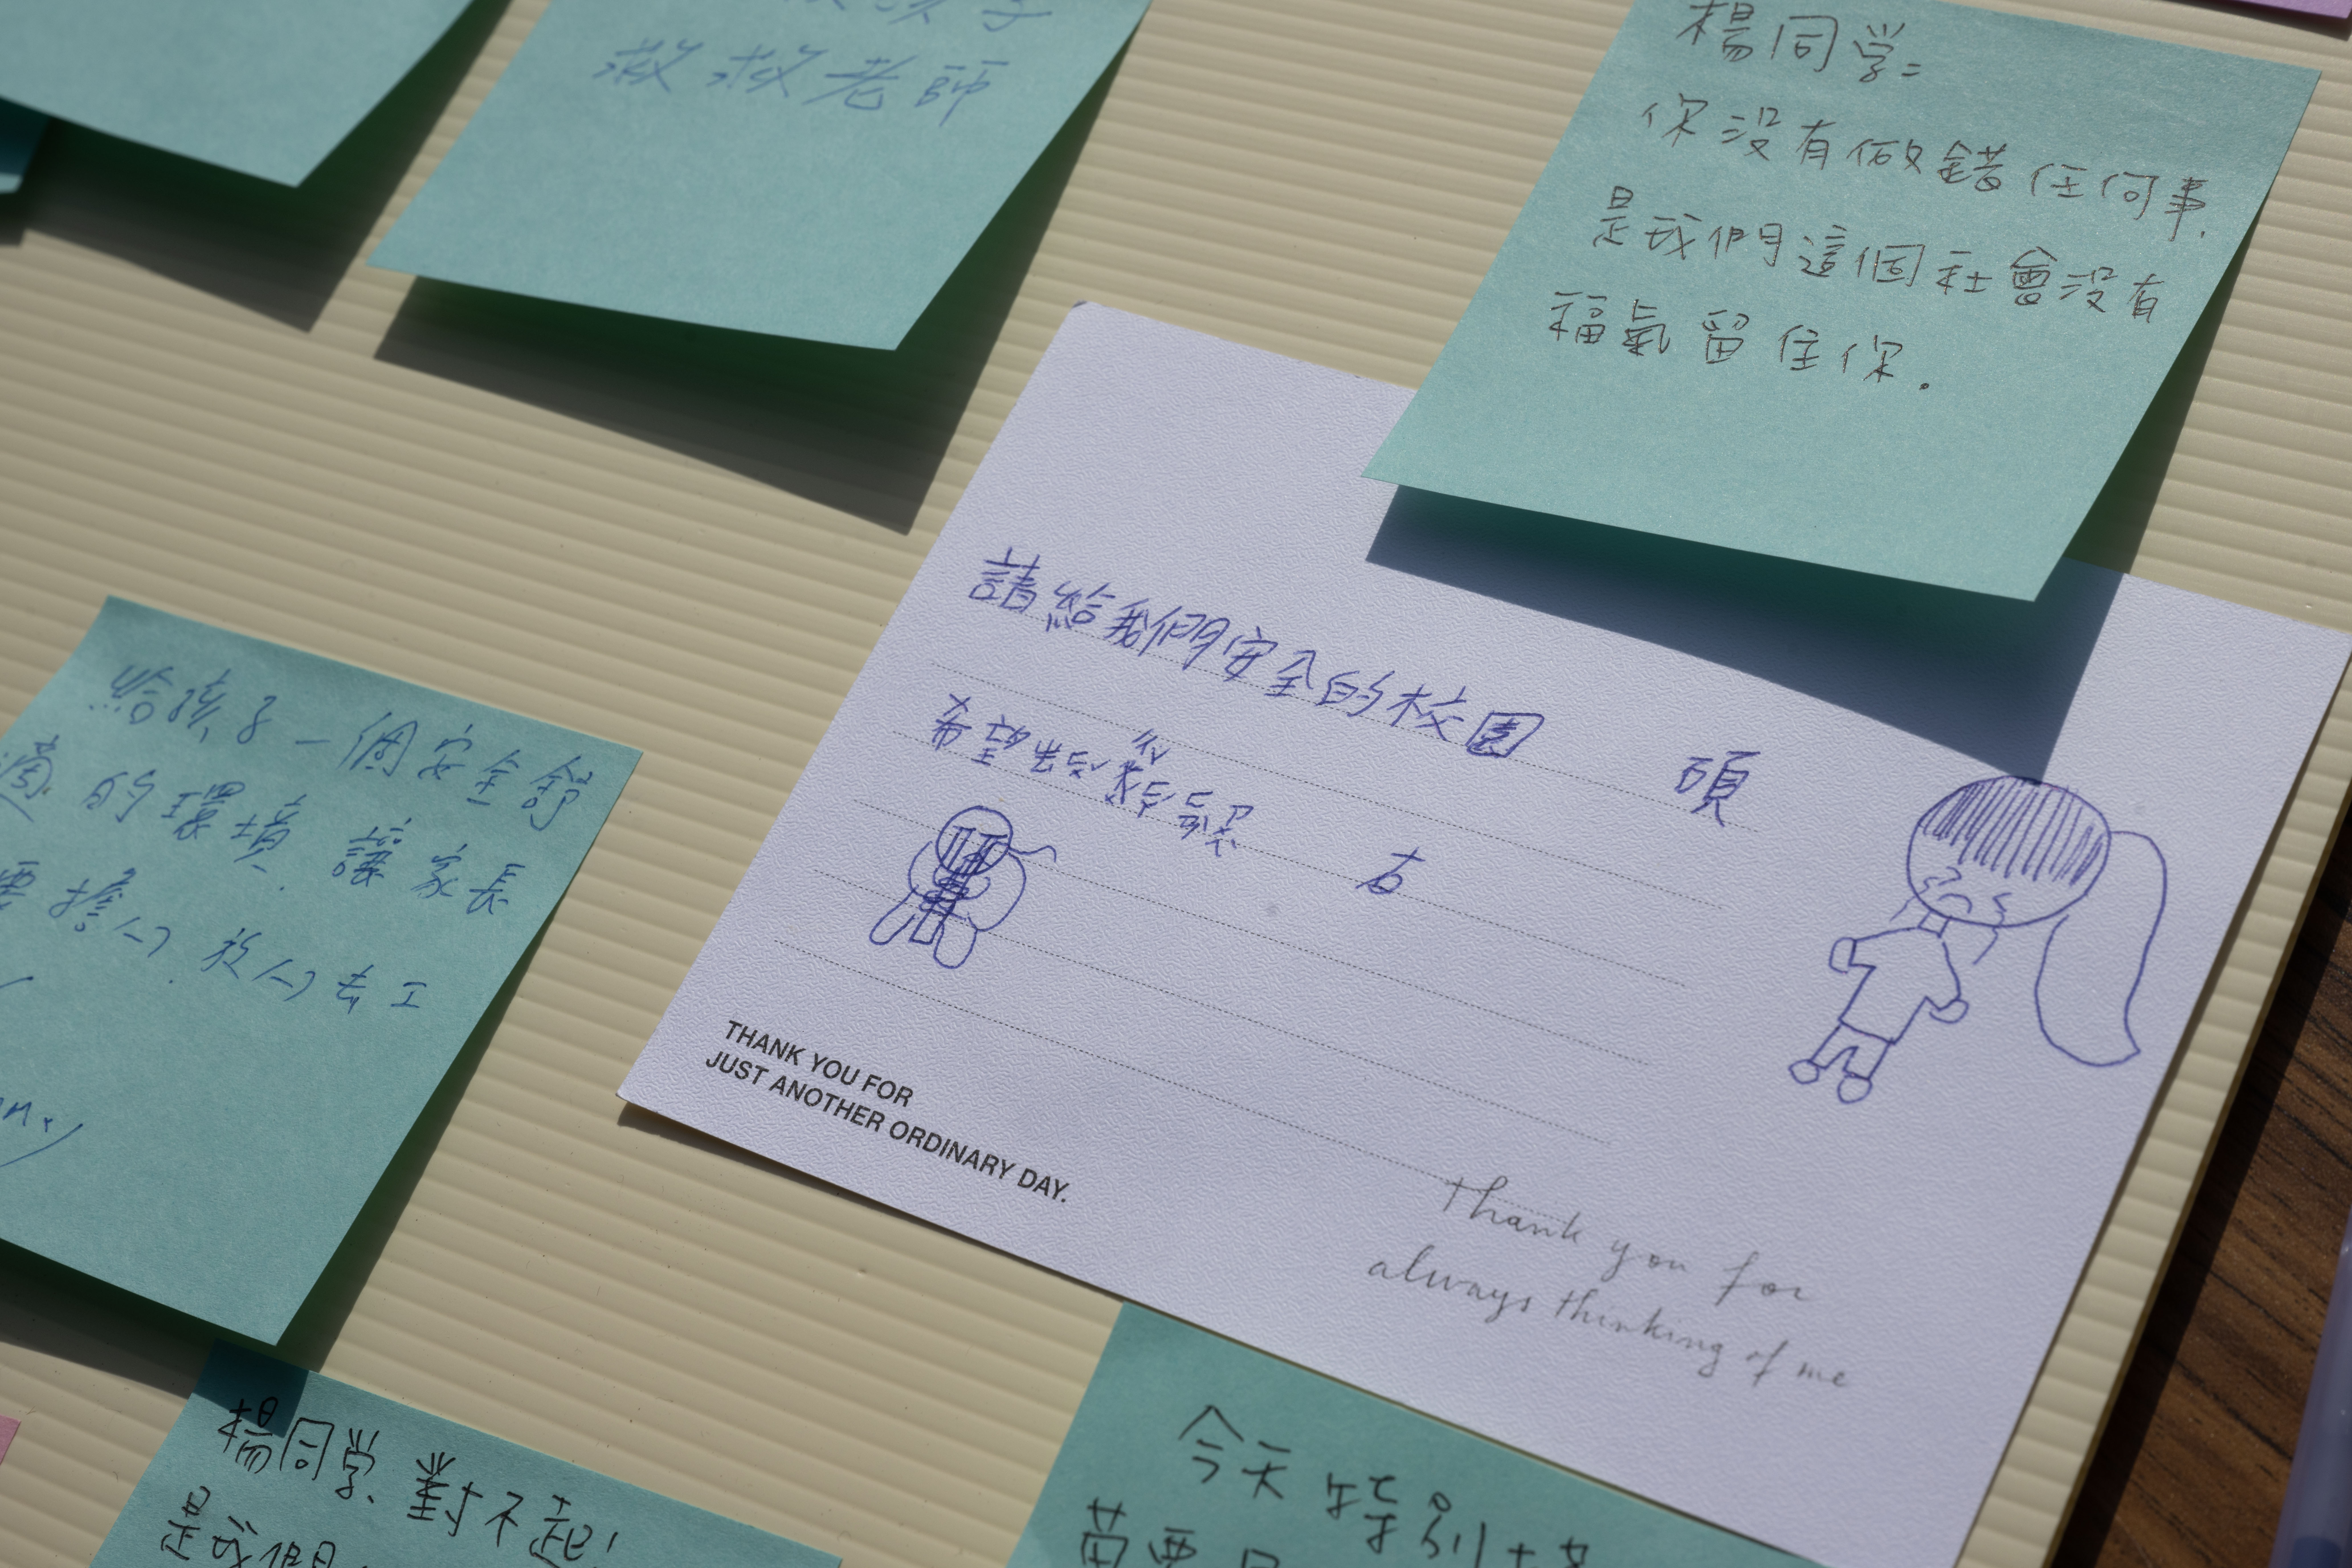 救救老師
楊同学:
你没有做錯任何事.
是我們這個社會没有
福氣留住你.
請給我們安全的校園
希望出
給孩子一個安全舒
適的環境.讓家長
要擔心.放心去工
THANK YOU FOR
JUST ANOTHER ORDINARY DAY.
Thank you for
always thinking of me
楊同学、對不起!
是我們
今天特別
苗栗